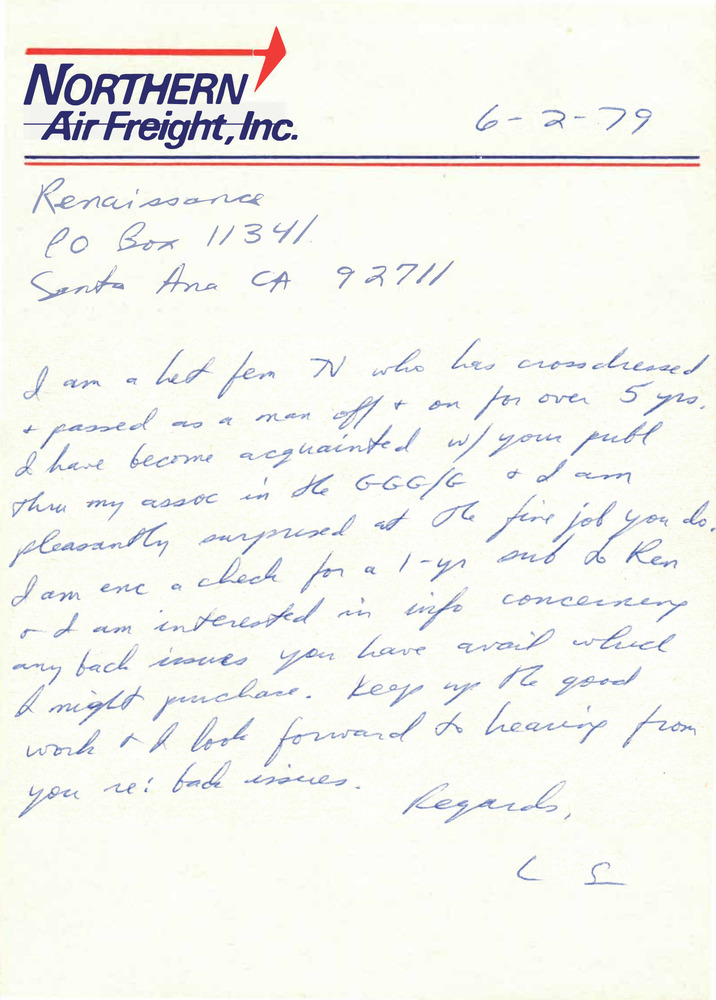 NORTHERN
Air Freight, Inc.
6-2-79
Renaissance
PO Box 11341
Santa Ana CA 92711
I am a het fem TV who has crossdressed
+ passed as a man off + on for over 5 yrs.
I have become acquainted w/ your publ
thru my assoc in the GGG/G + I am
pleasantly surprised at the fine job you do.
I am enc a check for a 1-yr sub to Ren
+ I am interested in info concerning
any back issues you have avail which
I might purchase. Keep up the good
work + I look forward to hearing from
you re: back issues.
Regards,
L S